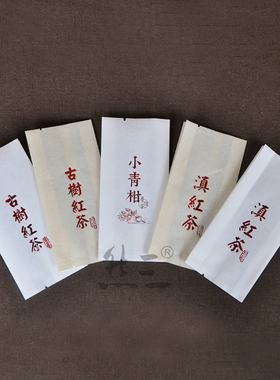 古樹紅茶
古樹紅茶
小青柑
滇紅茶
滇紅茶